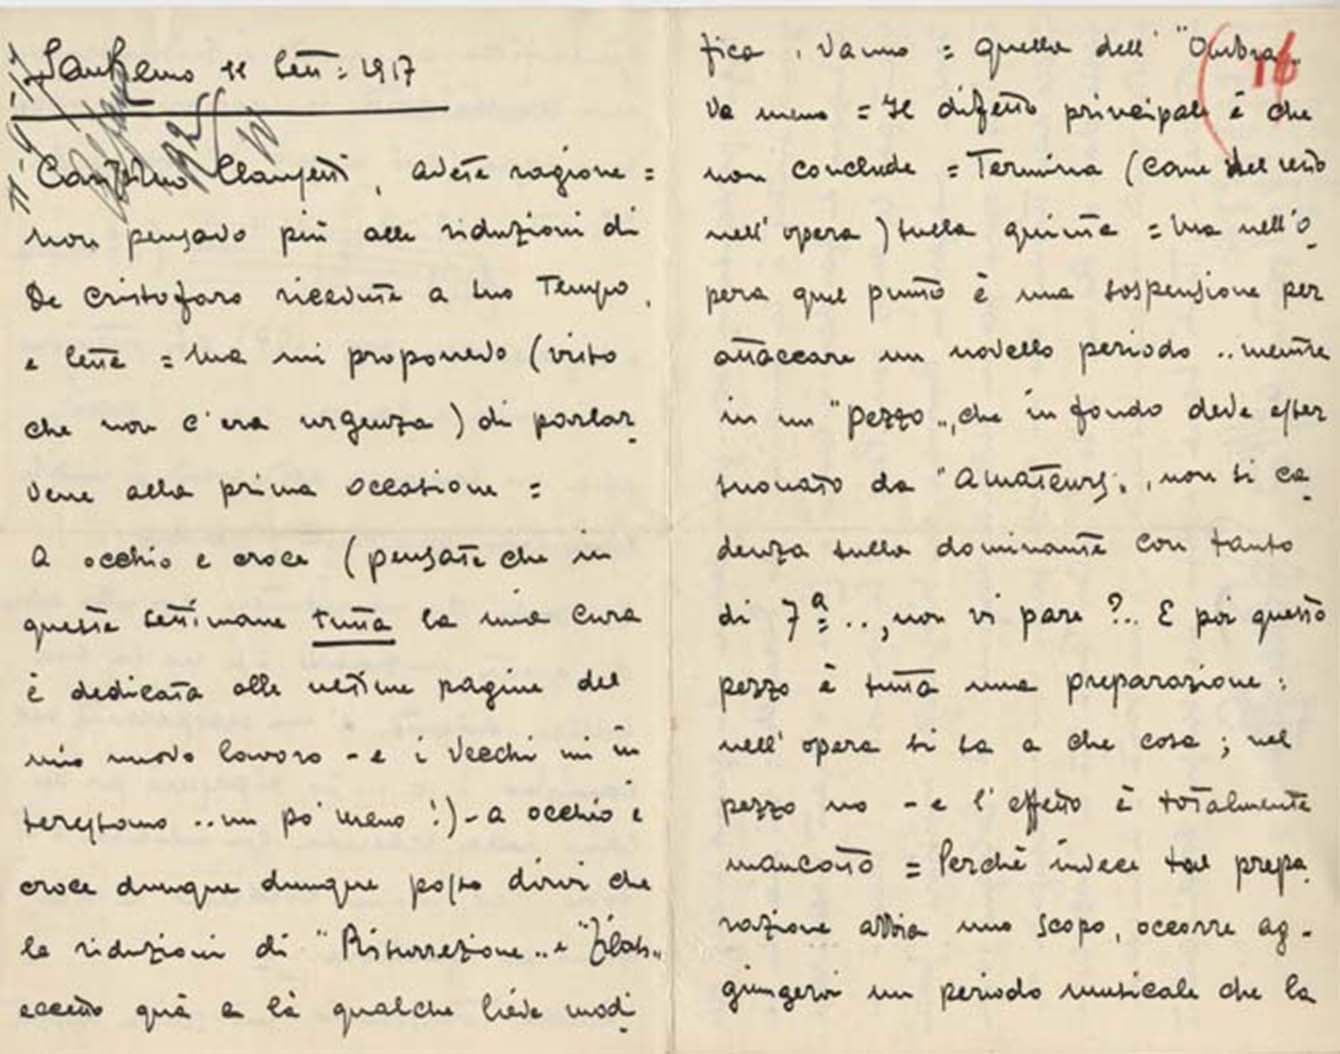 SanRemo 11 Sett = 1917
Carissimo Clausetti, avete ragione =
non pensavo più alle riduzioni di
De Cristofaro ricevute a suo Tempo,
e lette = Ma mi proponevo (visto
che non c'era urgenza) di parlar
vene alla prima occasione =
A occhio e croce (pensate che in
queste settimane tutta la mia cura
è dedicata alle ultime pagine del
mio nuovo lavoro - e i vecchi mi in
teressano .. un po' meno!) - a occhio e
croce dunque dunque posso dirvi che
le riduzioni di "Risurrezione" e "Zilah"
eccetto quà e là qualche lieve modi
fica, vanno = quella dell' "Ombra"
va meno = Il difetto principale è che
non conclude = Termina (come del resto
nell'opera) sulla quinta = Ma nell'o
pera quel punto è una sospensione per
attaccare un novello periodo .. mentre
in un "pezzo", che in fondo deve esser
suonato da "Amateurs", non si ca
denza sulla dominante con tanto
di 7ª .., non vi pare?.. E poi questo
pezzo è tutta una preparazione:
nell'opera si sa a che cosa; nel
pezzo no - e l'effetto è totalmente
mancato = Perchè invece tal prepa
razione abbia uno scopo, occorre ag-
giungervi un periodo musicale che la
16
11-9-17